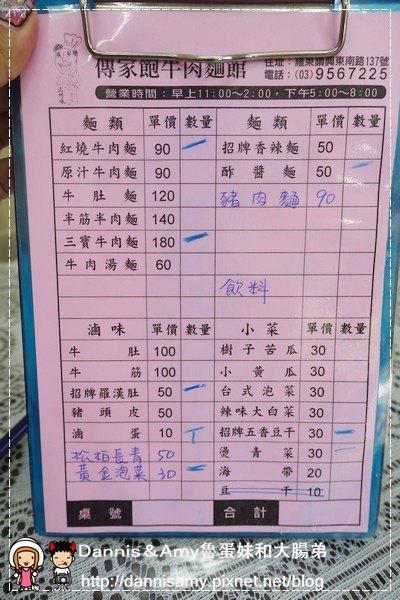 傳家飽牛肉麵館
住址：羅東鎮興東南路137號
電話：(03)9567225
營業時間：早上11:00～2:00，下午5:00～8:00
麵類 單價 數量 麵類 單價 數量
紅燒牛肉麵 90 招牌香辣麵 50
原汁牛肉麵 90 酢醬麵 50
牛肚麵 120 豬肉麵 90
半筋半肉麵 140
三寶牛肉麵 180
牛肉湯麵 60
飲料
滷味 單價 數量 小菜 單價 數量
牛肚 100 樹子苦瓜 30
牛筋 100 小黃瓜 30
招牌羅漢肚 50 台式泡菜 30
豬頭皮 50 辣味大白菜 30
滷蛋 10 招牌五香豆干 30
松柏長青 50 燙青菜 30
黃金泡菜 30 海帶 20
豆干 10
桌號 合計
Dannis & Amy魯蛋妹和大腸弟
http://dannisamy.pixnet.net/blog